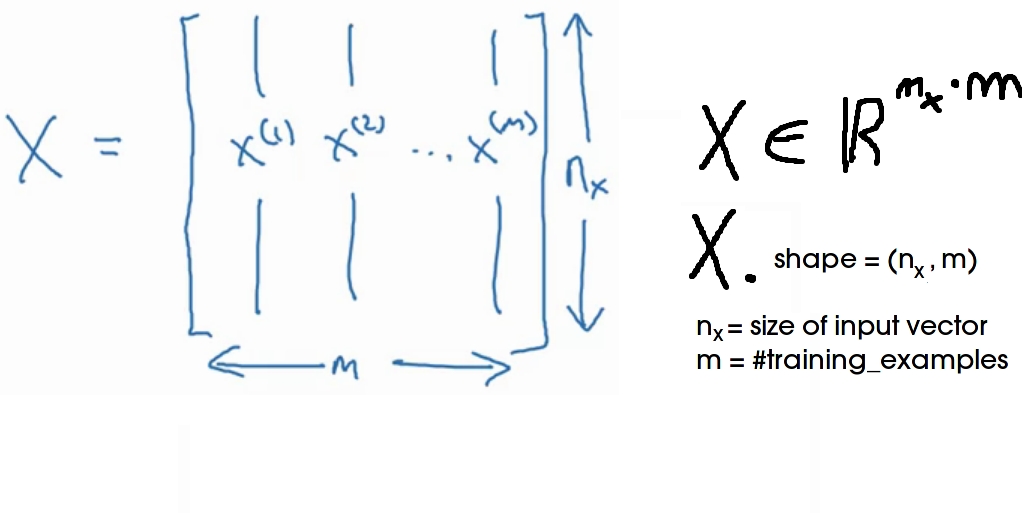 X = [ x^(1) x^(2) ... x^(m) ] n_x
m
X ∈ ℝ^(n_x · m)
X. shape = (n_x , m)
n_x = size of input vector
m = #training_examples